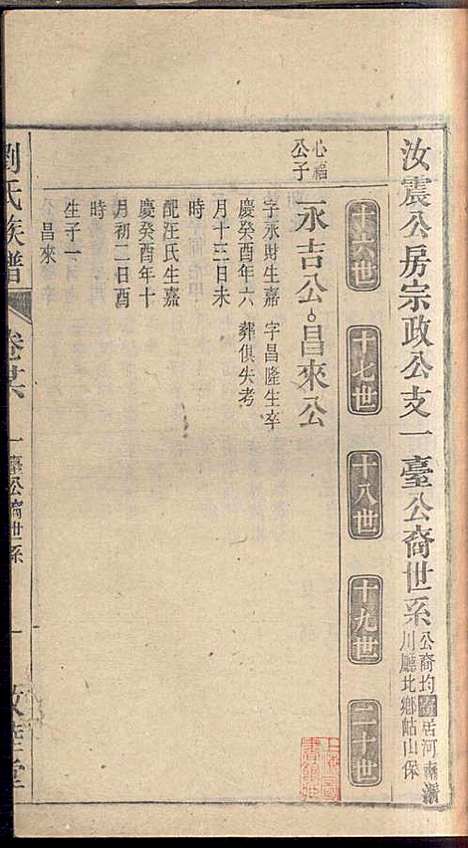 汝震公房宗政公支一臺公裔世系
公裔均居河南
川廳北鄉岵山保
十六世 十七世 十八世 十九世 二十世
心福
公子
永吉公 昌來公
字永財生嘉
慶癸酉年六
月十三日未
時
配汪氏生嘉
慶癸酉年十
月初二日酉
時
生子一
昌來
字昌隆生卒
葬俱失考
劉氏族譜 卷廿六 一臺公裔世系 一